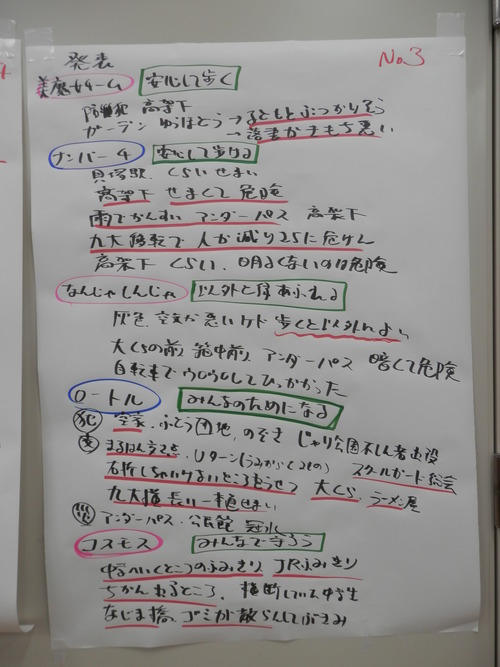 発表
No.3
美魔女チーム 安心して歩く
防犯 高架下
ガーデン ゆうほどう→子どもとぶつかりそう
→落書がきもち悪い
ナンバー4 安心して歩ける
貝塚駅、くらい せまい
高架下 せまくて危険
雨でかんすい アンダーパス 高架下
九大移転で人が減りさらに危けん
高架下 くらい、明るくないのは危険
なんじゃもんじゃ 以外と緑あふれる
灰色、空気が悪いケド 歩くと以外によい
大くらの前 箱中前 アンダーパス 暗くて危険
自転車でウロウロしてひっかかった
ロートル みんなのためになる
犯 空家、ふとう団地、のぞき じゃり公園不しん者出没
交 まるはん交差点、Uターン
右折しちゃいけないところ右せつ 大くら、ラーメン屋
スクールガード総会
九大横長い一植せまい
災 アンダーパス・公民館 冠水
コスモス みんなで守ろう
中学へいくところのふみきり JRふみきり
ちかん出るところ、横断している中学生
なじま橋、ゴミが散らんしてぶきみ